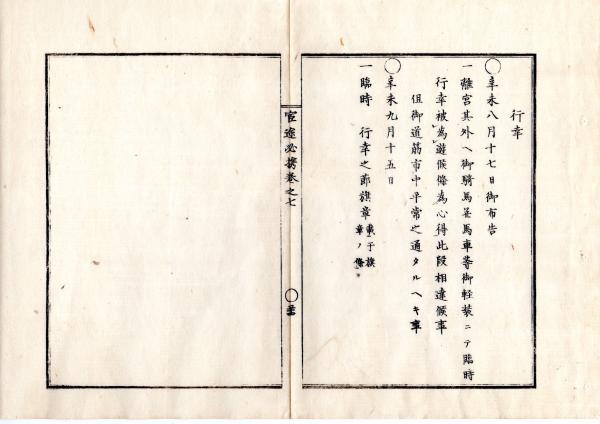 行幸
◯辛未八月十七日御布告
一離宮其外ヘ御騎馬並馬車等御軽装ニテ臨時
行幸被為遊候條為心得此段相達候事
但御道筋市中平常之通タルヘキ事
◯辛未九月十五日
一臨時 行幸之節旗章
載于旗
章ノ條
官途必携巻之七